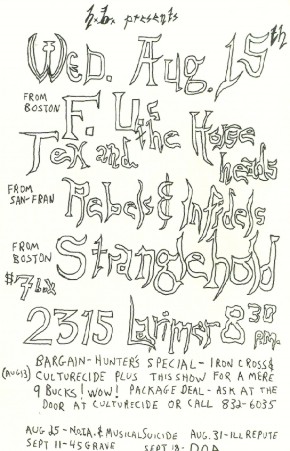 h.b.c. presents
Wed. Aug. 15th
FROM BOSTON
F. U's
Tex and the Horse heads
FROM SAN-FRAN
Rebels & Infidels
FROM BOSTON
Stranglehold
2315 Larimer 8 30 P.M.
BARGAIN-HUNTER'S SPECIAL - IRON CROSS &
(AUG 13) CULTURECIDE PLUS THIS SHOW FOR A MERE
9 BUCKS! WOW! PACKAGE DEAL - ASK AT THE
DOOR AT CULTURECIDE OR CALL 832-6035
AUG 25 - N.O.T.A. & MUSICAL SUICIDE AUG. 31 - ILL REPUTE
SEPT 11 - 45 GRAVE SEPT 18 - D.O.A.